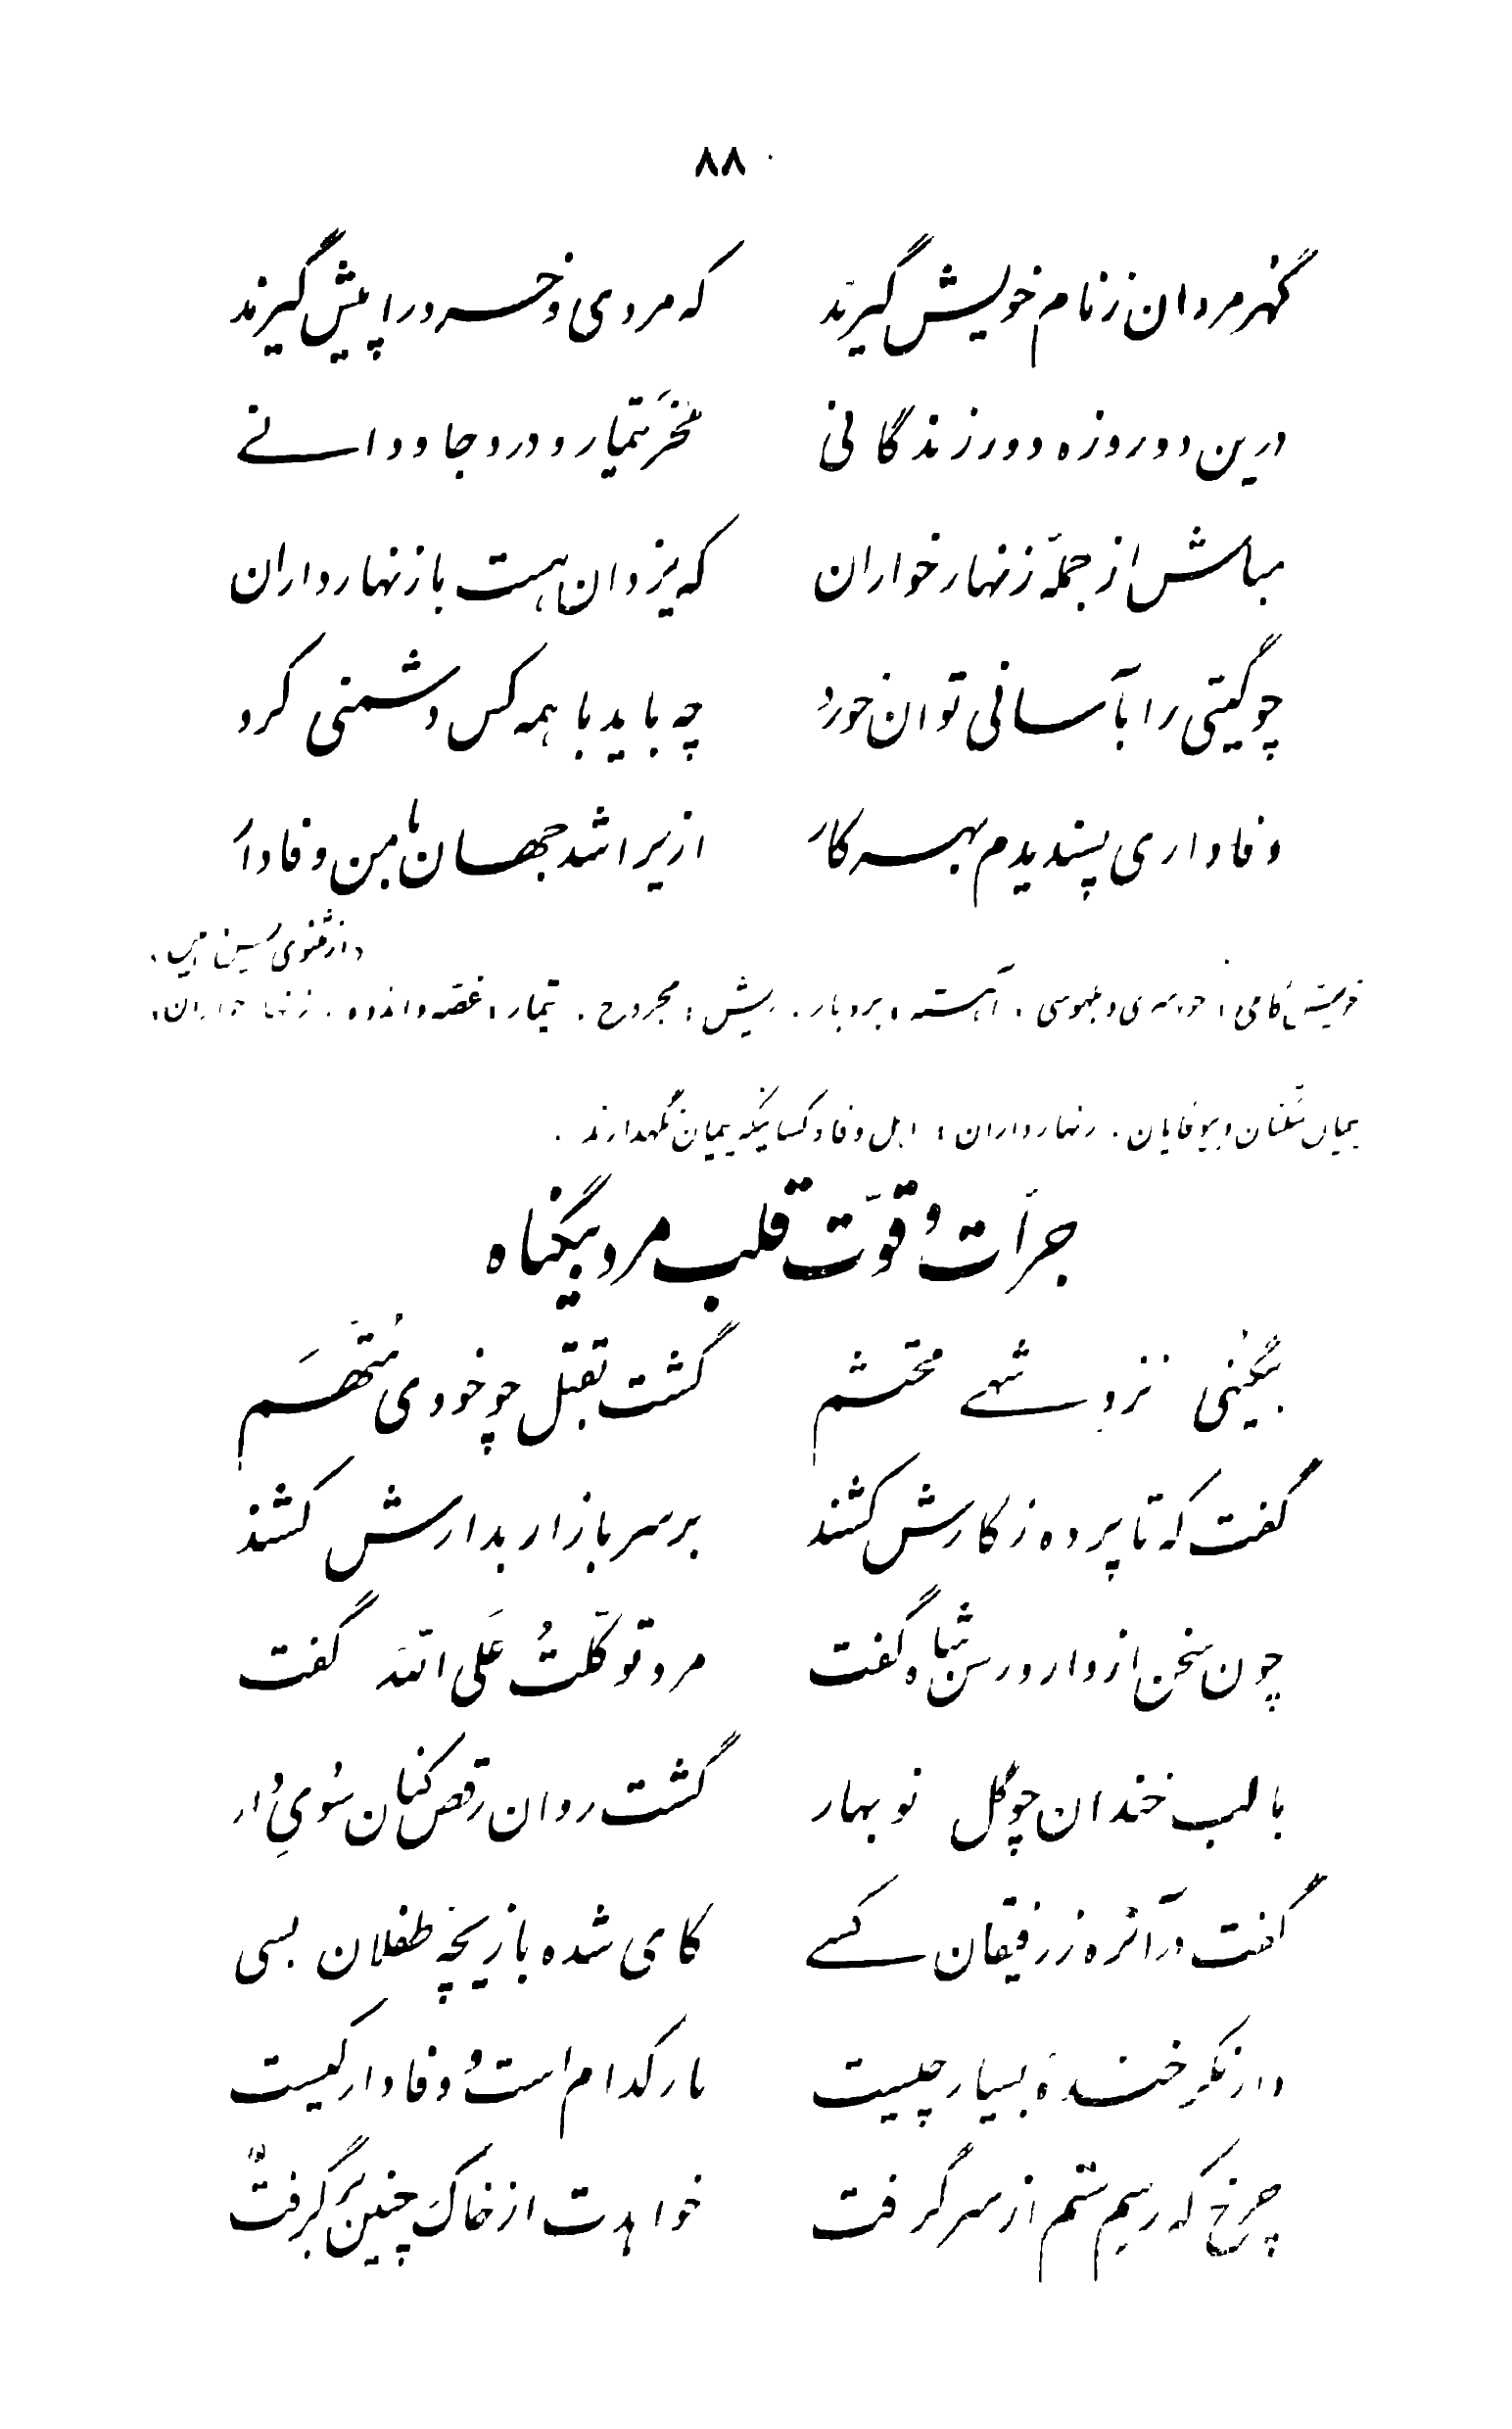 ۸۸
گهر مردان ز نام خویش گیرند که مردی و خرد را پیش گیرند
درین دو روزه دور زندگانی مخر تیمار و درد جاودانے
مباش از جملهٔ زنهار خواران که یزدان هست با زنهارداران
چو گیتی را بآسانی توان خورد چه باید با همه کس دشمنی کرد
وفاداری پسندیدم بهر کار ازیرا شد جهان با من وفادار
از مثنوی
خویشتن کامی: و بلهوسی. آهسته: بردبار. ریش: مجروح. تیمار: غصه و اندوه. زنهار خواران:
پیمان شکنان و بیوفایان. زنهارداران: اهل وفا و کسانیکه پیمان نگهدارند.
جرأت و قوّت قلب مرد بیگناه
بیگنهی نزد شهے محتشم گشت بقتل چو خودی مُتَّهَم
گفت که تا پرده ز کارش کشند بر سر بازار بدارش کشند
چون سخن از دار و رسن شاه گفت مرد توکّلتُ عَلی الله گفت
با لب خندان چو گل نوبهار گشت روان رقص کنان سُویِ دار
گفت در آن ره ز رفیقان کسے کای شده بازیچه طفلان بسی
در خندهٔ بسیار چیست یار کدام است و وفادار کیست
چرخ که رسم ستم از سر گرفت خواهدت از خاک چنین برگرفت